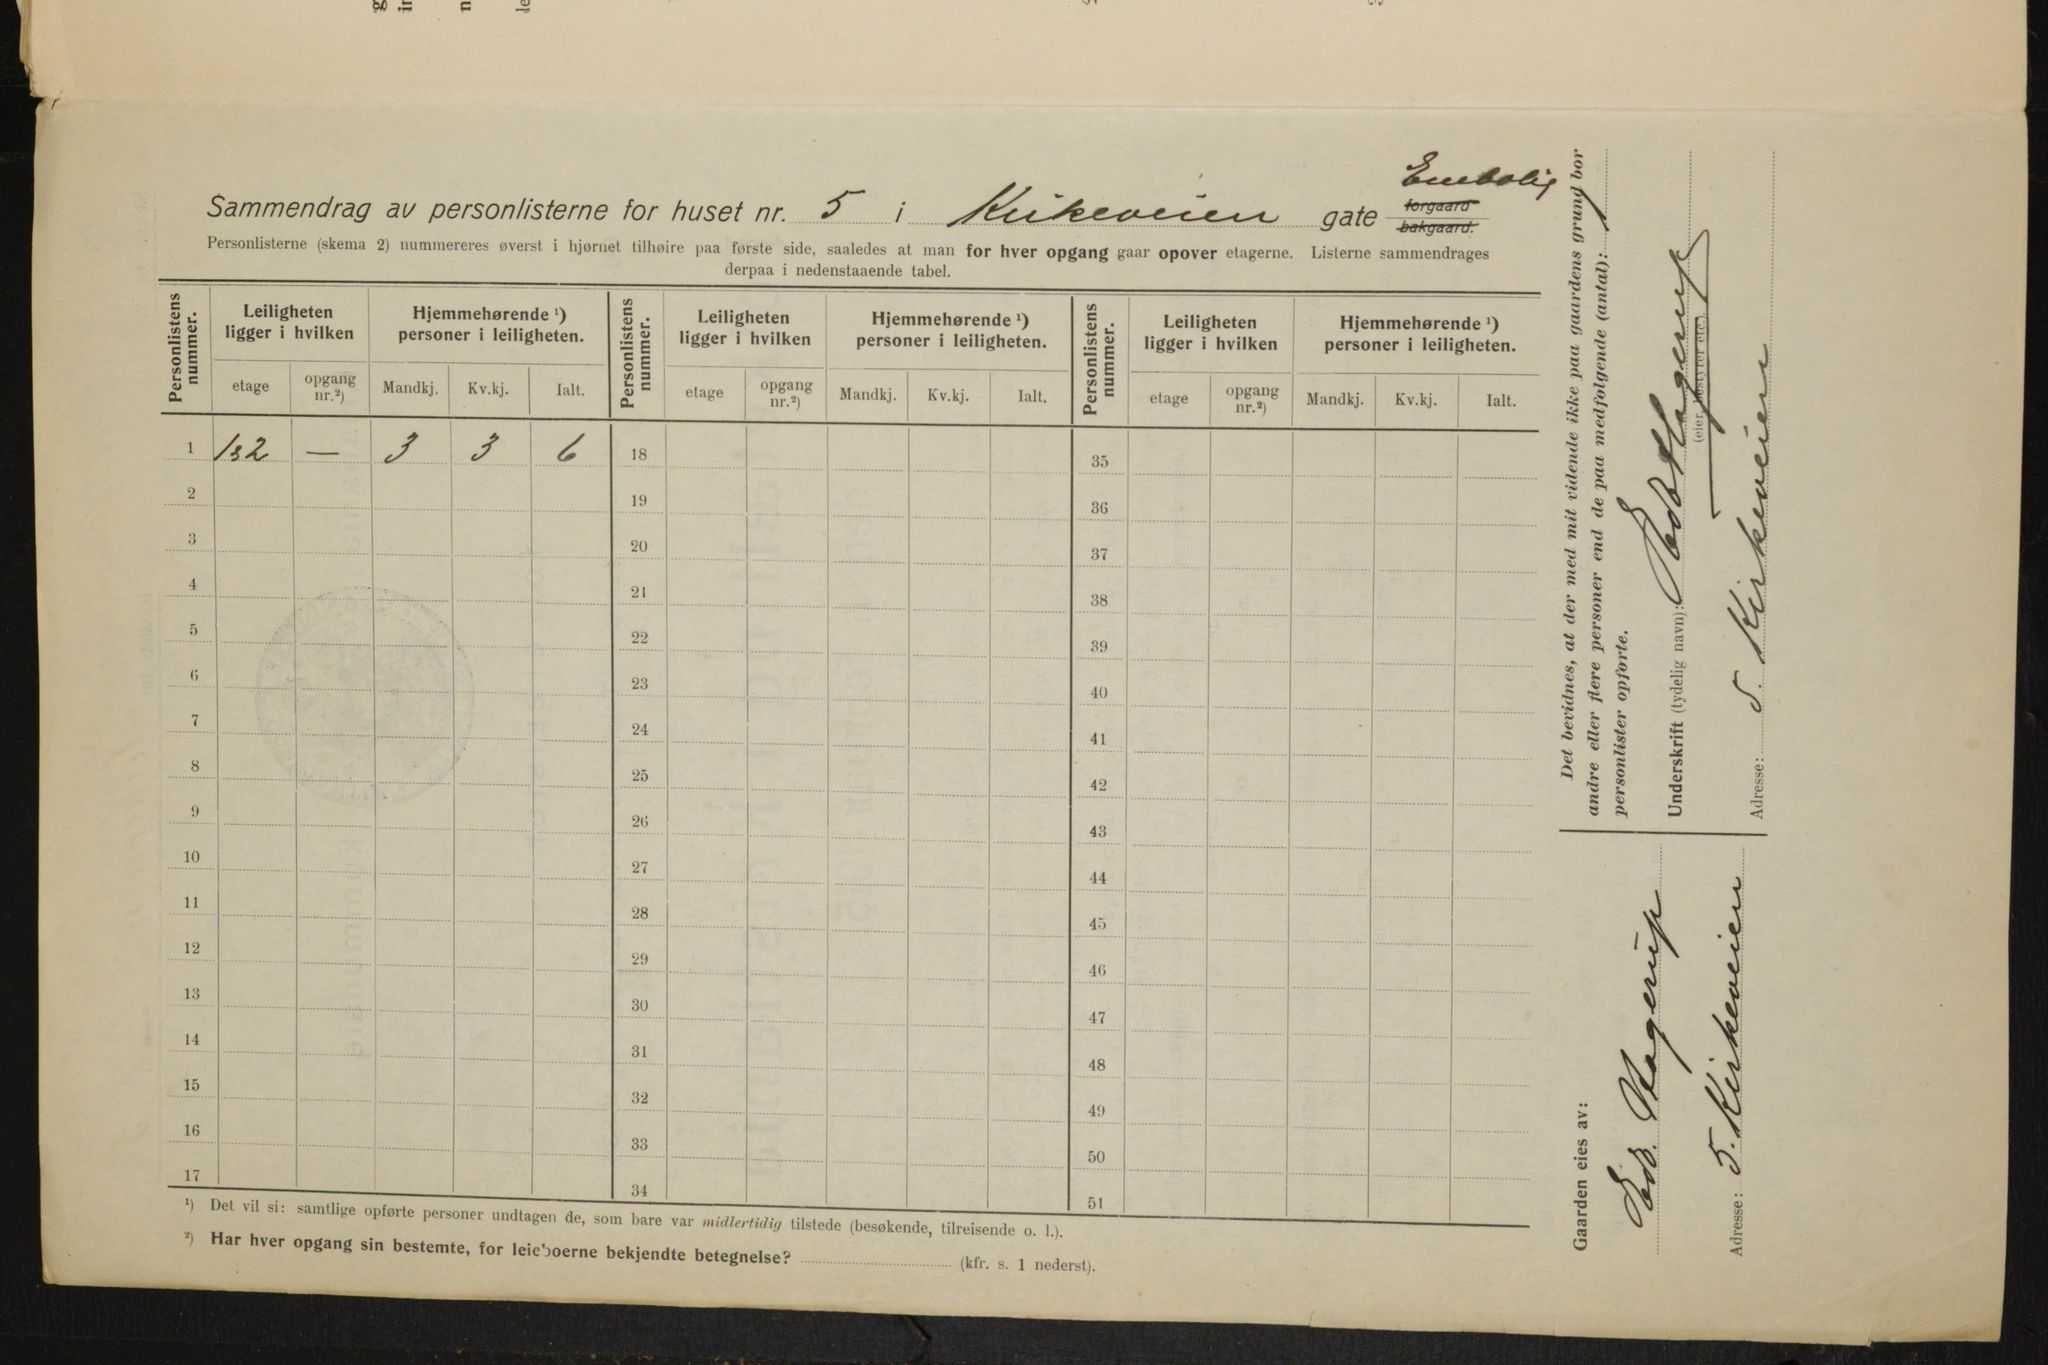 Sammendrag av personlisterne for huset nr. 5 i Kirkeveien gate Enebolig
forgaard
bakgaard.
Personlisterne (skema 2) nummereres øverst i hjørnet tilhøire paa første side, saaledes at man for hver opgang gaar opover etagerne. Listerne sammendrages
derpaa i nedenstaaende tabel.
Personlistens nummer. Leiligheten ligger i hvilken Hjemmehørende ¹) personer i leiligheten. Personlistens nummer. Leiligheten ligger i hvilken Hjemmehørende ¹) personer i leiligheten. Personlistens nummer. Leiligheten ligger i hvilken Hjemmehørende ¹) personer i leiligheten.
etage opgang nr.²) Mandkj. Kv.kj. Ialt. etage opgang nr.²) Mandkj. Kv.kj. Ialt. etage opgang nr.²) Mandkj. Kv.kj. Ialt.
1 1&2 — 3 3 6 18 35
2 19 36
3 20 37
4 21 38
5 22 39
6 23 40
7 24 41
8 25 42
9 26 43
10 27 44
11 28 45
12 29 46
13 30 47
14 31 48
15 32 49
16 33 50
17 34 51
¹) Det vil si: samtlige opførte personer undtagen de, som bare var midlertidig tilstede (besøkende, tilreisende o. l.).
²) Har hver opgang sin bestemte, for leieboerne bekjendte betegnelse? (kfr. s. 1 nederst).
Gaarden eies av:
Edv. Hagerup
Adresse: 5. Kirkeveien
Det bevidnes, at der med mit vidende ikke paa gaardens grund bor
andre eller flere personer end de paa medfølgende (antal): 1
personlister opførte.
Underskrift (tydelig navn): Edv Hagerup
(eier, bestyrer etc.)
Adresse: 5. Kirkeveien